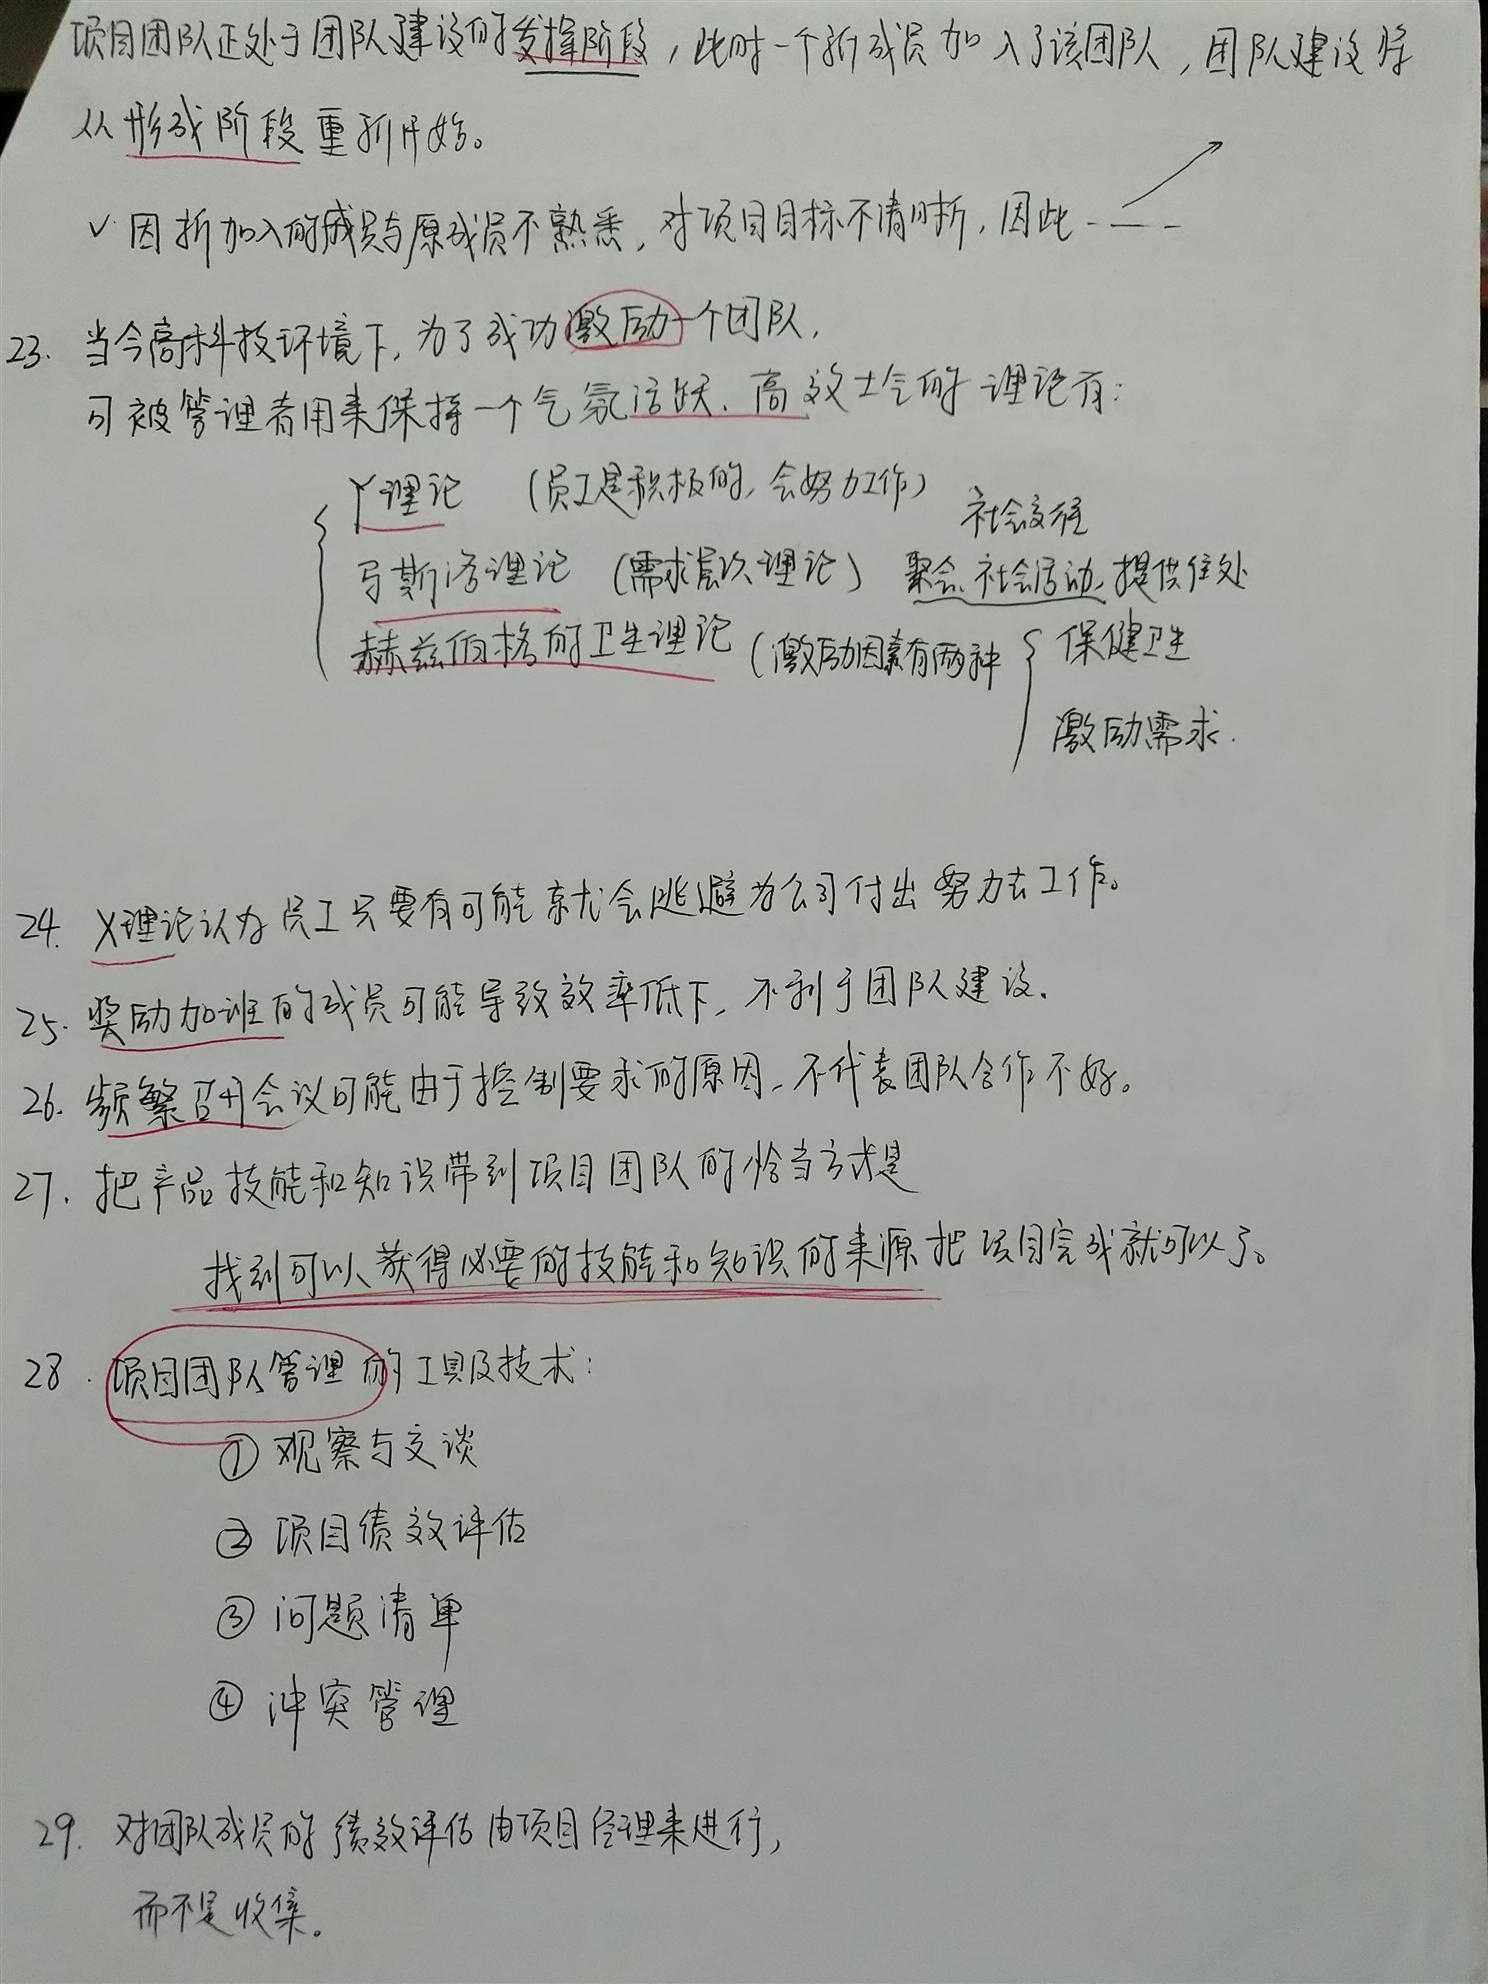 项目团队正处于团队建设的发挥阶段，此时一个新成员加入了该团队，团队建设将
从形成阶段重新开始。
✓因新加入的成员与原成员不熟悉，对项目目标不清晰，因此---
23. 当今高科技环境下，为了成功激励一个团队，
可被管理者用来保持一个气氛活跃、高效士气的理论有：
Y理论 （员工是积极的，会努力工作）
社会交往
马斯洛理论 （需求层次理论） 聚会、社会活动、提供住处
赫兹伯格的卫生理论（激励因素有两种 保健卫生
激励需求.
24. X理论认为员工只要有可能就会逃避为公司付出努力去工作。
25. 奖励加班的成员可能导致效率低下，不利于团队建设.
26. 频繁召开会议可能由于控制要求的原因，不代表团队合作不好。
27. 把产品技能和知识带到项目团队的恰当方式是
找到可以获得必要的技能和知识的来源把项目完成就可以了。
28. 项目团队管理的工具及技术：
① 观察与交谈
② 项目绩效评估
③ 问题清单
④ 冲突管理
29. 对团队成员的绩效评估由项目经理来进行，
而不是收集。